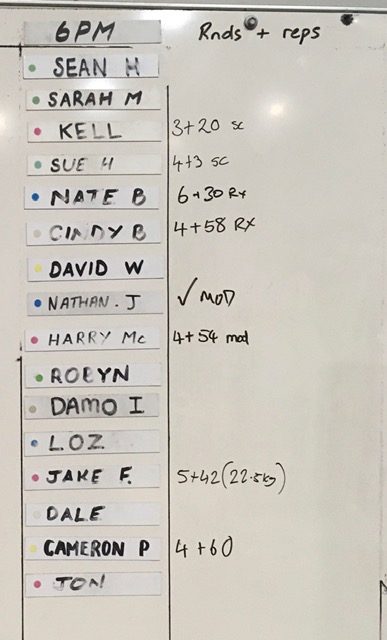 6PM Rnds + reps
SEAN H
SARAH M
KELL 3+20 sc
SUE H 4+3 sc
NATE B 6+30 Rx
CINDY B 4+58 RX
DAVID W
NATHAN. J ✓ MOD
HARRY Mc 4+54 mod
ROBYN
DAMO I
LOZ
JAKE F. 5+42 (22.5kg)
DALE
CAMERON P 4+60
JON